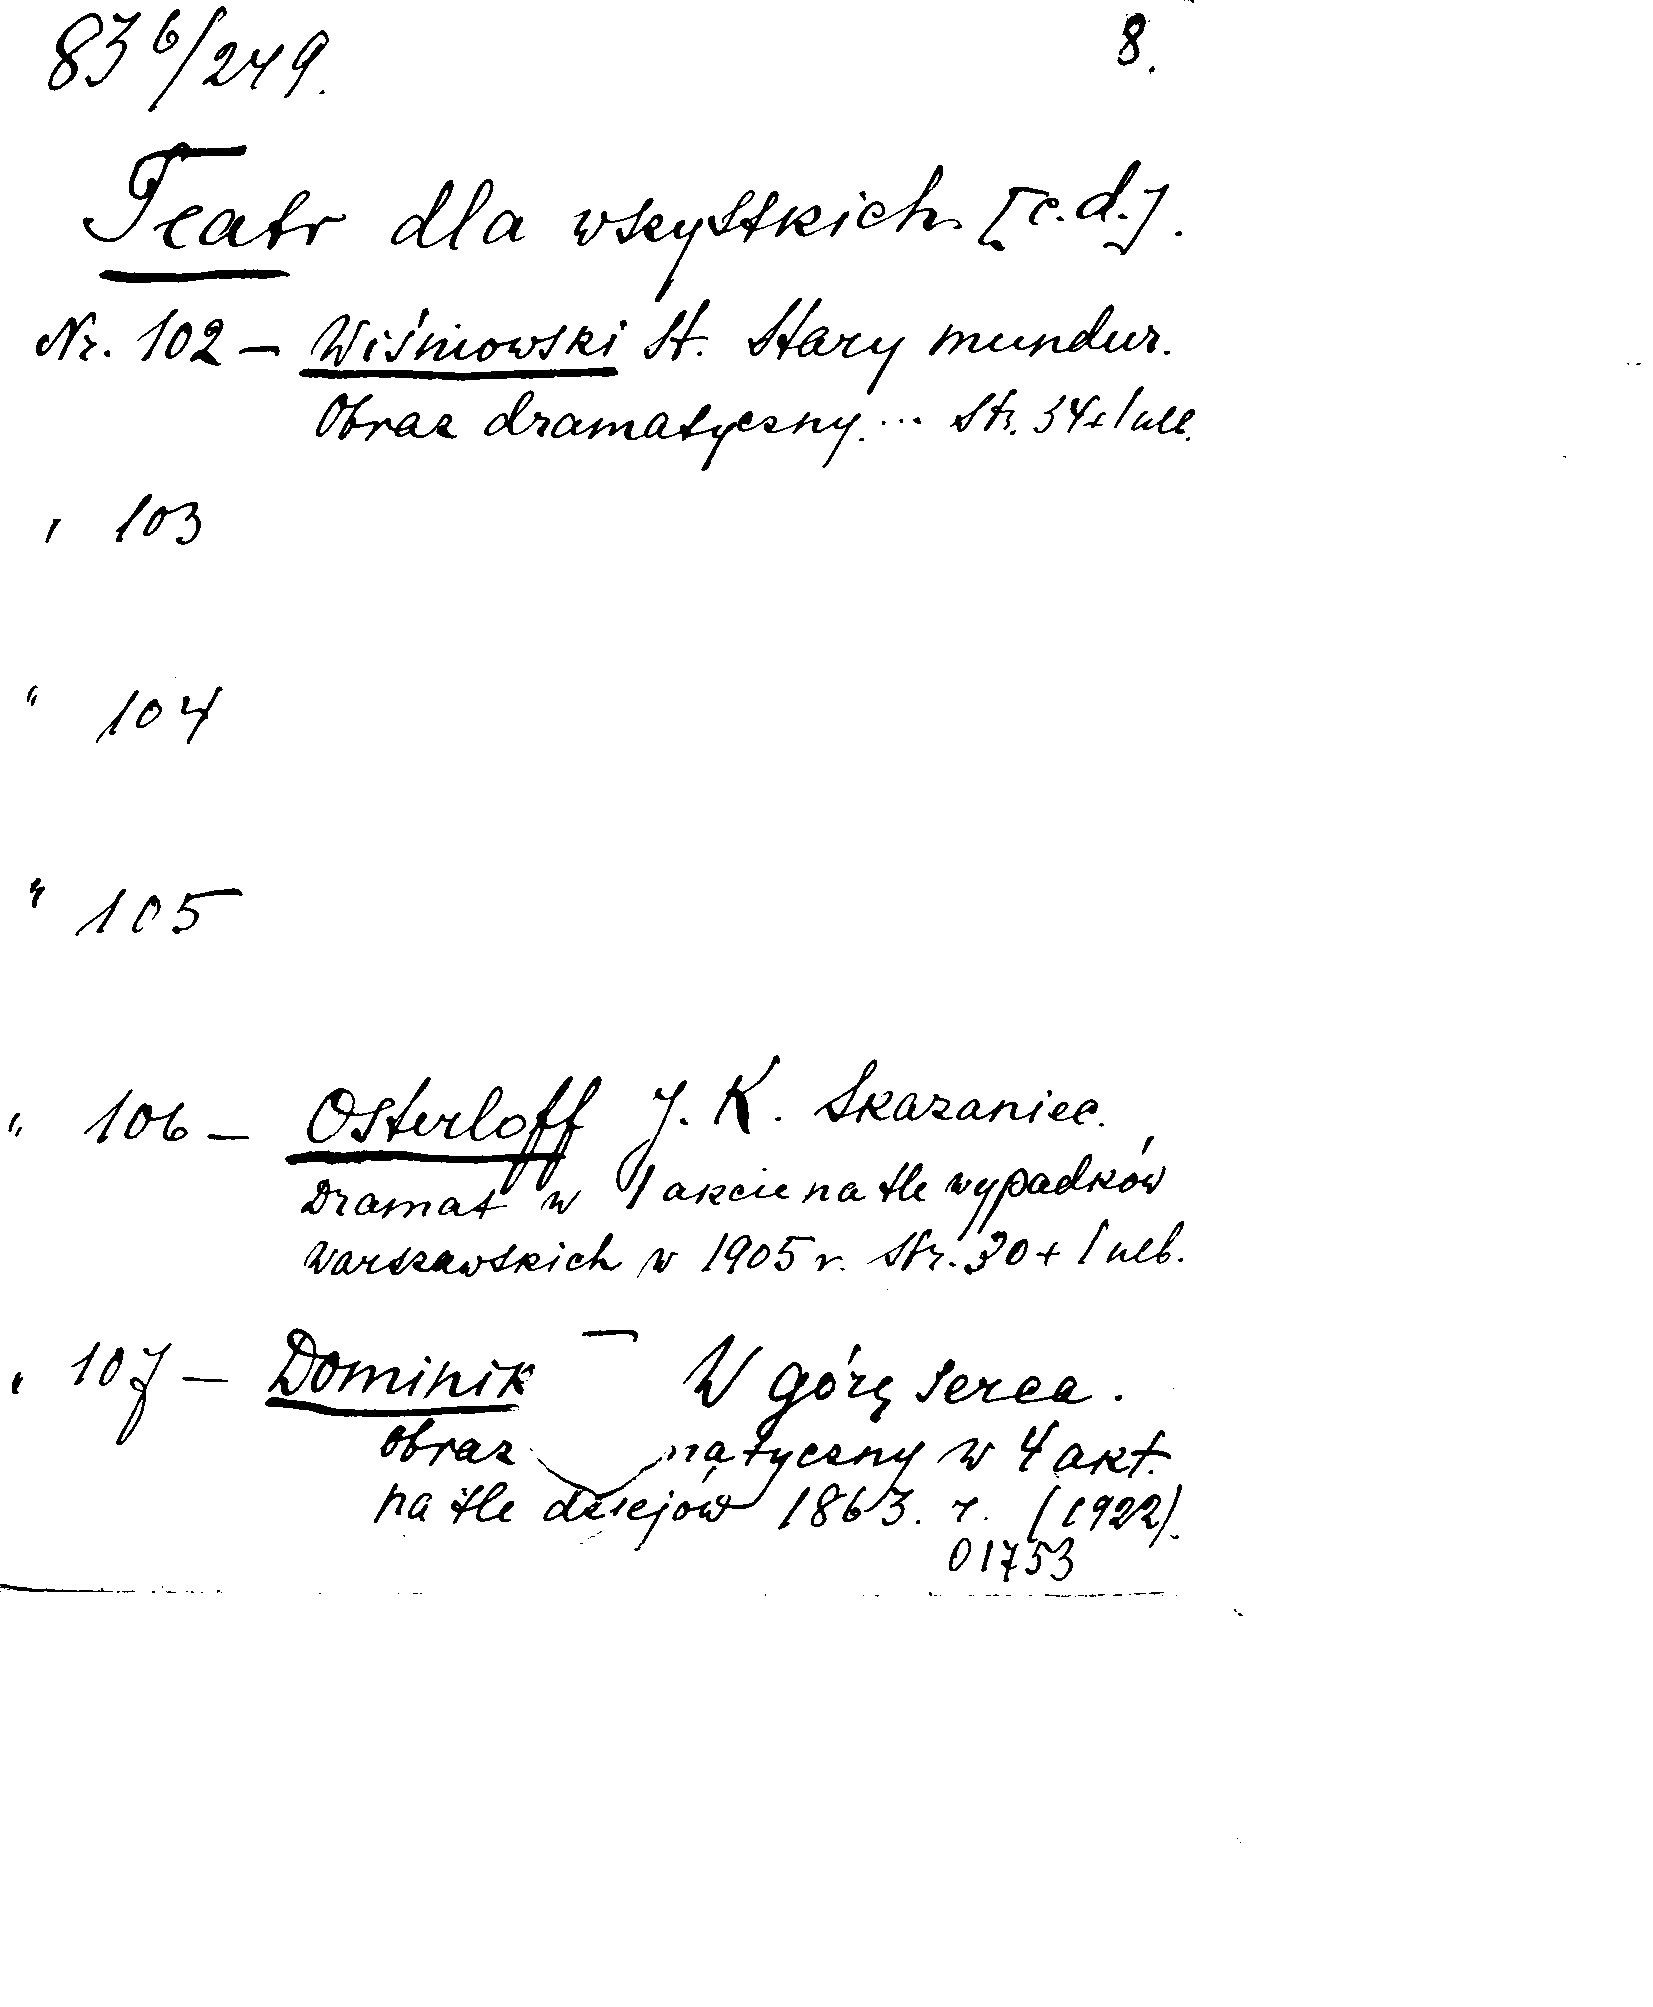 83 6/249.
8.
Teatr dla wszystkich [c.d.].
Nr. 102 - Wiśniowski St. Stary mundur.
Obraz dramatyczny... Str. 34+1 nlb.
" 103
" 104
" 105
" 106 - Osterloff J. K. Skazaniec.
Dramat w 1 akcie na tle wypadków
warszawskich w 1905 r. Str. 30+1 nlb.
" 107 - Dominik W górę serca.
Obraz matyczny w 4 akt.
na tle dziejów 1863. r. (1922).
01753